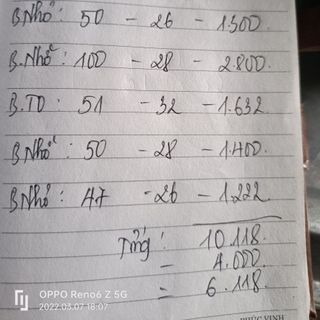 B.Nhỏ: 50 - 26 - 1.300.
B.Nhỏ: 100 - 28 - 2.800.
B.TD: 51 - 32 - 1.632
B.Nhỏ: 50 - 28 - 1.400.
B.Nhỏ: 47 - 26 - 1.222
Tổng: 10.118.
- 4.000
= 6.118.
OPPO Reno6 Z 5G
2022.03.07 18:07